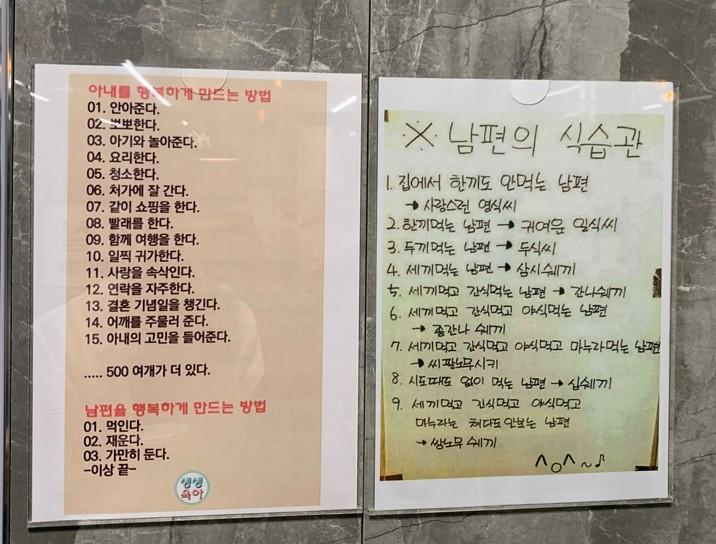 아내를 행복하게 만드는 방법
01. 안아준다.
02. 뽀뽀한다.
03. 아기와 놀아준다.
04. 요리한다.
05. 청소한다.
06. 처가에 잘 간다.
07. 같이 쇼핑을 한다.
08. 빨래를 한다.
09. 함께 여행을 한다.
10. 일찍 귀가한다.
11. 사랑을 속삭인다.
12. 연락을 자주한다.
13. 결혼 기념일을 챙긴다.
14. 어깨를 주물러 준다.
15. 아내의 고민을 들어준다.
..... 500 여개가 더 있다.
남편을 행복하게 만드는 방법
01. 먹인다.
02. 재운다.
03. 가만히 둔다.
-이상 끝-
생생
육아
※ 남편의 식습관
1. 집에서 한끼도 안먹는 남편
→ 사랑스런 영식씨
2. 한끼먹는 남편 → 귀여운 일식씨
3. 두끼먹는 남편 → 두식씨
4. 세끼먹는 남편 → 삼시쉐끼
5. 세끼먹고 간식먹는 남편 → 간나쉐끼
6. 세끼먹고 간식먹고 야식먹는 남편
→ 종간나 쉐끼
7. 세끼먹고 간식먹고 야식먹고 마누라먹는 남편
→ 씨팔노무시키
8. 시도때도 없이 먹는 남편 → 십쉐끼
9. 세끼먹고 간식먹고 야식먹고
마누라는 쳐다도안보는 남편
→ 쌍노무 쉐끼
^o^~♪